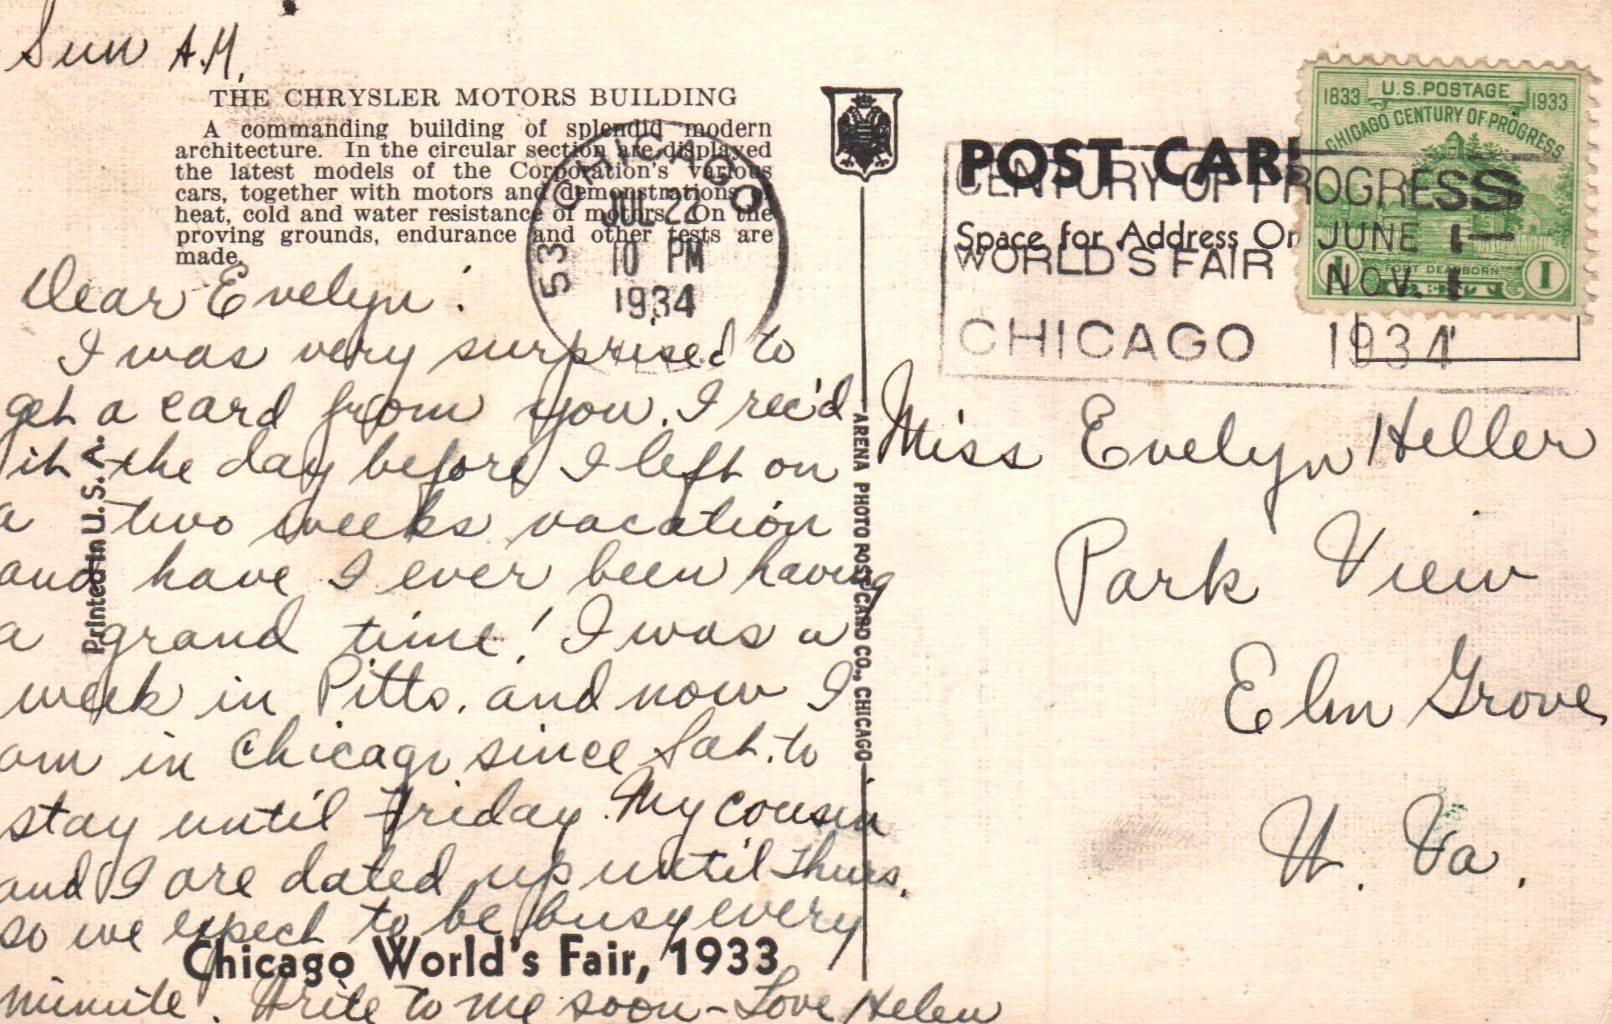 Sun A.M.
THE CHRYSLER MOTORS BUILDING
A commanding building of splendid modern
architecture. In the circular section are displayed
the latest models of the Corporation's various
cars, together with motors and demonstrations
heat, cold and water resistance of motors. On the
proving grounds, endurance and other tests are
made.
Dear Evelyn:
I was very surprised to
get a card from you. I rec'd
it the day before I left on
a two weeks vacation
and have I ever been having
a grand time! I was a
week in Pitts. and now I
am in Chicago since Sat. to
stay until Friday. My cousin
and I are dated up until Thurs.
so we expect to be busy every
minute. Write to me soon - Love Helen
Chicago World's Fair, 1933
Printed in U. S. A.
ARENA PHOTO POST CARD CO., CHICAGO
CHICAGO
53
JUL 22
10 PM
1934
ILL.
POST CAR
Space for Address On
CENTURY OF PROGRESS
JUNE 1-
WORLD'S FAIR NOV. 1
CHICAGO 1934
U.S. POSTAGE
1833 1933
CHICAGO CENTURY OF PROGRESS
FORT DEARBORN
1 CENT 1
Miss Evelyn Heller
Park View
Elm Grove
W. Va.